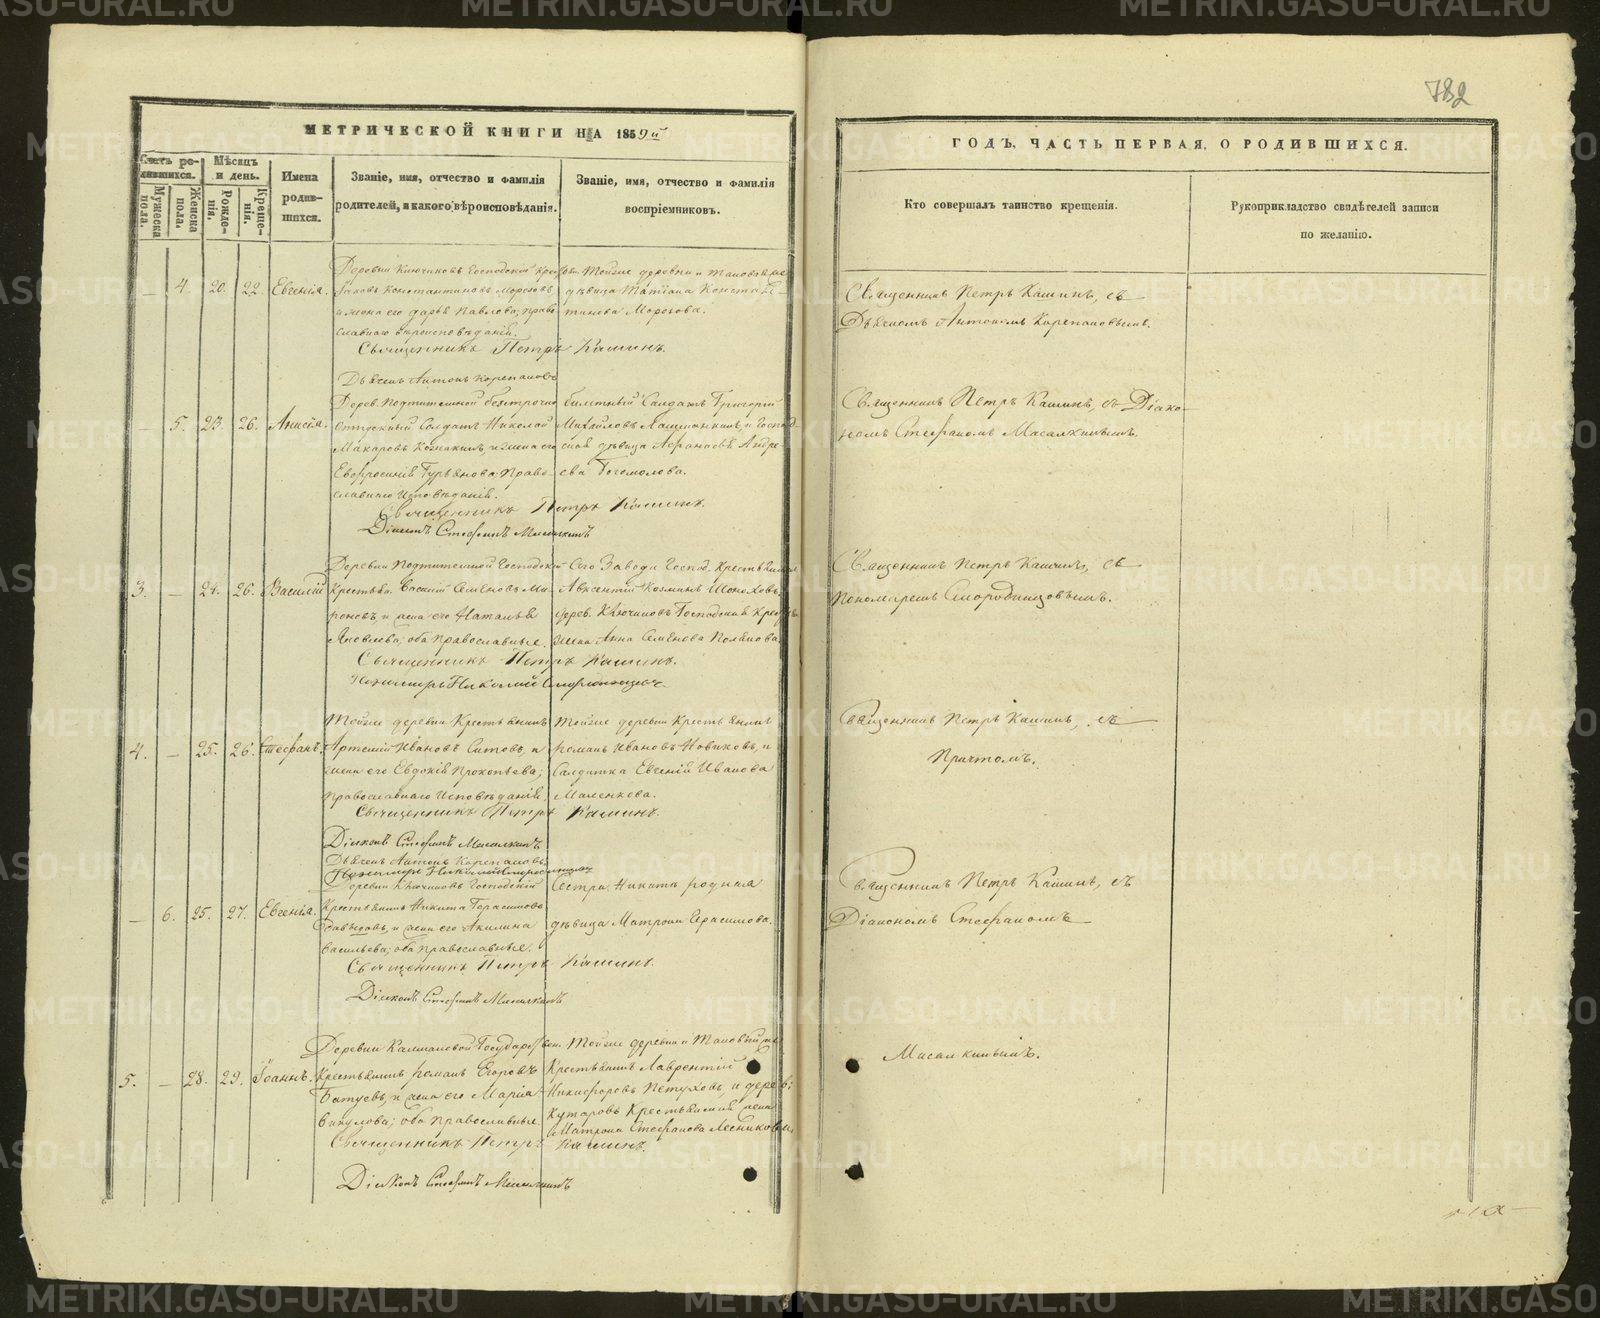 782
МЕТРИЧЕСКОЙ КНИГИ НА 1859й
ГОДЪ, ЧАСТЬ ПЕРВАЯ, О РОДИВШИХСЯ.
Счетъ ро-
дившихся.
Мужеска
пола.
Женска
пола.
Мѣсяцъ
и день.
Рожде-
нія.
Креще-
нія.
Имена
родив-
шихся.
Званіе, имя, отчество и фамилія
родителей, и какого вѣроисповѣданія.
Званіе, имя, отчество и фамилія
воспріемниковъ.
Кто совершалъ таинство крещенія.
Рукоприкладство свидѣтелей записи
по желанію.
4. 20. 22. Евгенія.
Деревни Ключиковъ Господскій
Яковъ Константиновъ Морозовъ
и жена его Дарья Павлова; право
славнаго вѣроисповѣданія.
Тойже деревни
дѣвица Татіана Констан-
тинова Морозова.
Священникъ Петръ Кашинъ.
Дьячекъ Антонъ Корепановъ
Священникъ Петръ Кашинъ, съ
Дьячкомъ Антономъ Корепановымъ.
5. 23. 26. Анисія.
безсрочно
отпускный Солдатъ Николай
Макаровъ и жена его
Евфросинія Гурьянова; Право-
славнаго Исповѣданія.
билетный Солдатъ Григорій
Михайловъ и Господ-
ская дѣвица Андре-
ева Богомолова.
Священникъ Петръ Кашинъ.
Діаконъ Стефанъ Масалкинъ
Священникъ Петръ Кашинъ, съ Діако-
номъ Стефаномъ Масалкинымъ.
3. 24. 26. Василій
Крестьян. Василій Семеновъ Ми-
роновъ и жена его Наталья
Яковлева; оба православные.
Сего Завода Господ. Крестьянинъ
Авксентій Козминъ
дерев. Ключиковъ Господская Крест.
жена Анна Семенова
Священникъ Петръ Кашинъ.
Пономарь Николай Смородинцовъ
Священникъ Петръ Кашинъ, съ
Пономаремъ Смородинцовымъ.
4. 25. 26. Стефанъ.
Тойже деревни Крестьянинъ
Артемій Ивановъ Ситовъ, и
жена его Евдокія Прокопьева;
православнаго Исповѣданія.
Тойже деревни Крестьянинъ
Романъ Ивановъ Новиковъ, и
Солдатка Евгенія Иванова
Маленкова.
Священникъ Петръ Кашинъ.
Діаконъ Стефанъ Масалкинъ
Дьячекъ Антонъ Корепановъ
Пономарь Николай Смородинцовъ
Священникъ Петръ Кашинъ, съ
Причтомъ.
6. 25. 27. Евгенія.
Деревни Ключиковъ Господскій
Крестьянинъ Никита Герасимовъ
Давыдовъ, и жена его Акилина
Васильева; оба православные.
Сестра Никиты родная
дѣвица Матрона Герасимова.
Священникъ Петръ Кашинъ.
Діаконъ Стефанъ Масалкинъ
Священникъ Петръ Кашинъ, съ
Діакономъ Стефаномъ
5. 28. 29. Іоаннъ.
Деревни Калмаковой Государствен.
Крестьянинъ Романъ Егоровъ
Батуевъ, и жена его Марія
Викулова; оба православные.
Тойже деревни и Таковый же
Крестьянинъ Лаврентій
Никифоровъ Пѣтуховъ, и дерев:
Крестьянская жена
Матрона Стефанова Лесникова.
Священникъ Петръ Кашинъ.
Діаконъ Стефанъ Масалкинъ
Масалкинымъ.
METRIKI.GASO-URAL.RU